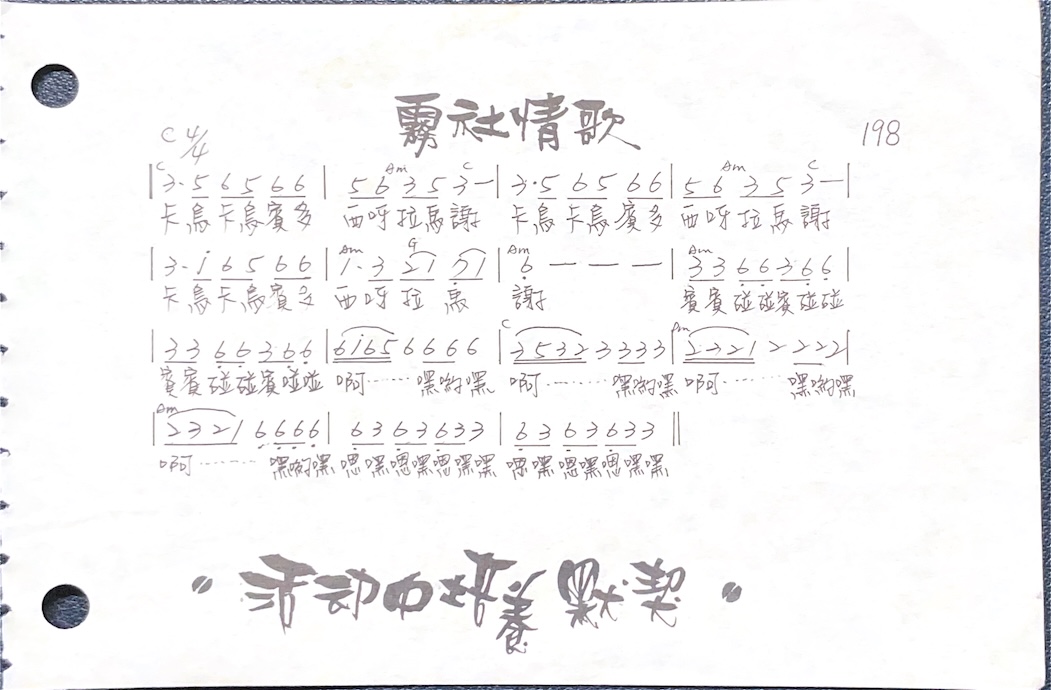 霧社情歌
198
C 4/4
C Am C Am C
|3·5 6 5 6 6 | 5 6 3 5 3 — | 3·5 6 5 6 6 | 5 6 3 5 3 — |
卡烏卡烏賓多 西呀拉馬謝 卡烏卡烏賓多 西呀拉馬謝
Am G Am Am
|3·i 6 5 6 6 | 1·3 2 1 7 1 | 6 — — — | 3 3 6 6 3 6 6 |
卡烏卡烏賓多 西呀拉馬 謝 賓賓碰碰賓碰碰
C Am
|3 3 6 6 3 6 6 | 6 i 6 5 6 6 6 6 | 3 5 3 2 3 3 3 3 | 2 3 2 1 2 2 2 2 |
賓賓碰碰賓碰碰 啊……嘿喲嘿 啊………嘿喲嘿 啊……嘿喲嘿
Am
|2 3 2 1 6 6 6 6 | 6 3 6 3 6 3 3 | 6 3 6 3 6 3 3 ||
啊……嘿喲嘿 嗯嘿嗯嘿嗯嘿嘿 嗯嘿嗯嘿嗯嘿嘿
〃活动中培養默契〃